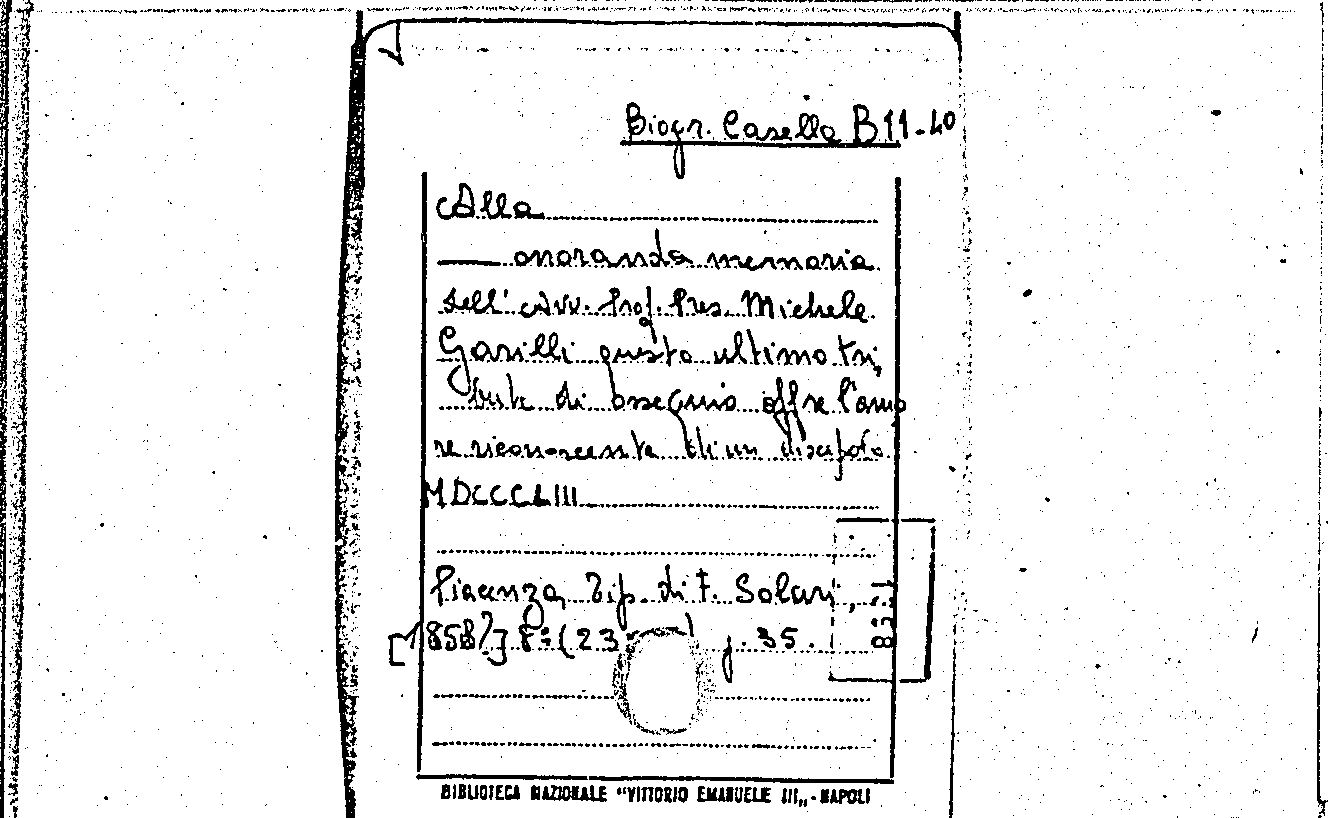 Biogr. Casella B 11-40
Alla
— onoranda memoria
dell' Avv. Prof. Pres. Michele
Garilli questo ultimo tri,
buto di ossequio offre l'amo
re riconoscente di un discepolo
MDCCCLIII
Piacenza, Tip. di F. Solari,
[1858?] 8° (23 p. 35.
BIBLIOTECA NAZIONALE "VITTORIO EMANUELE III„ - NAPOLI